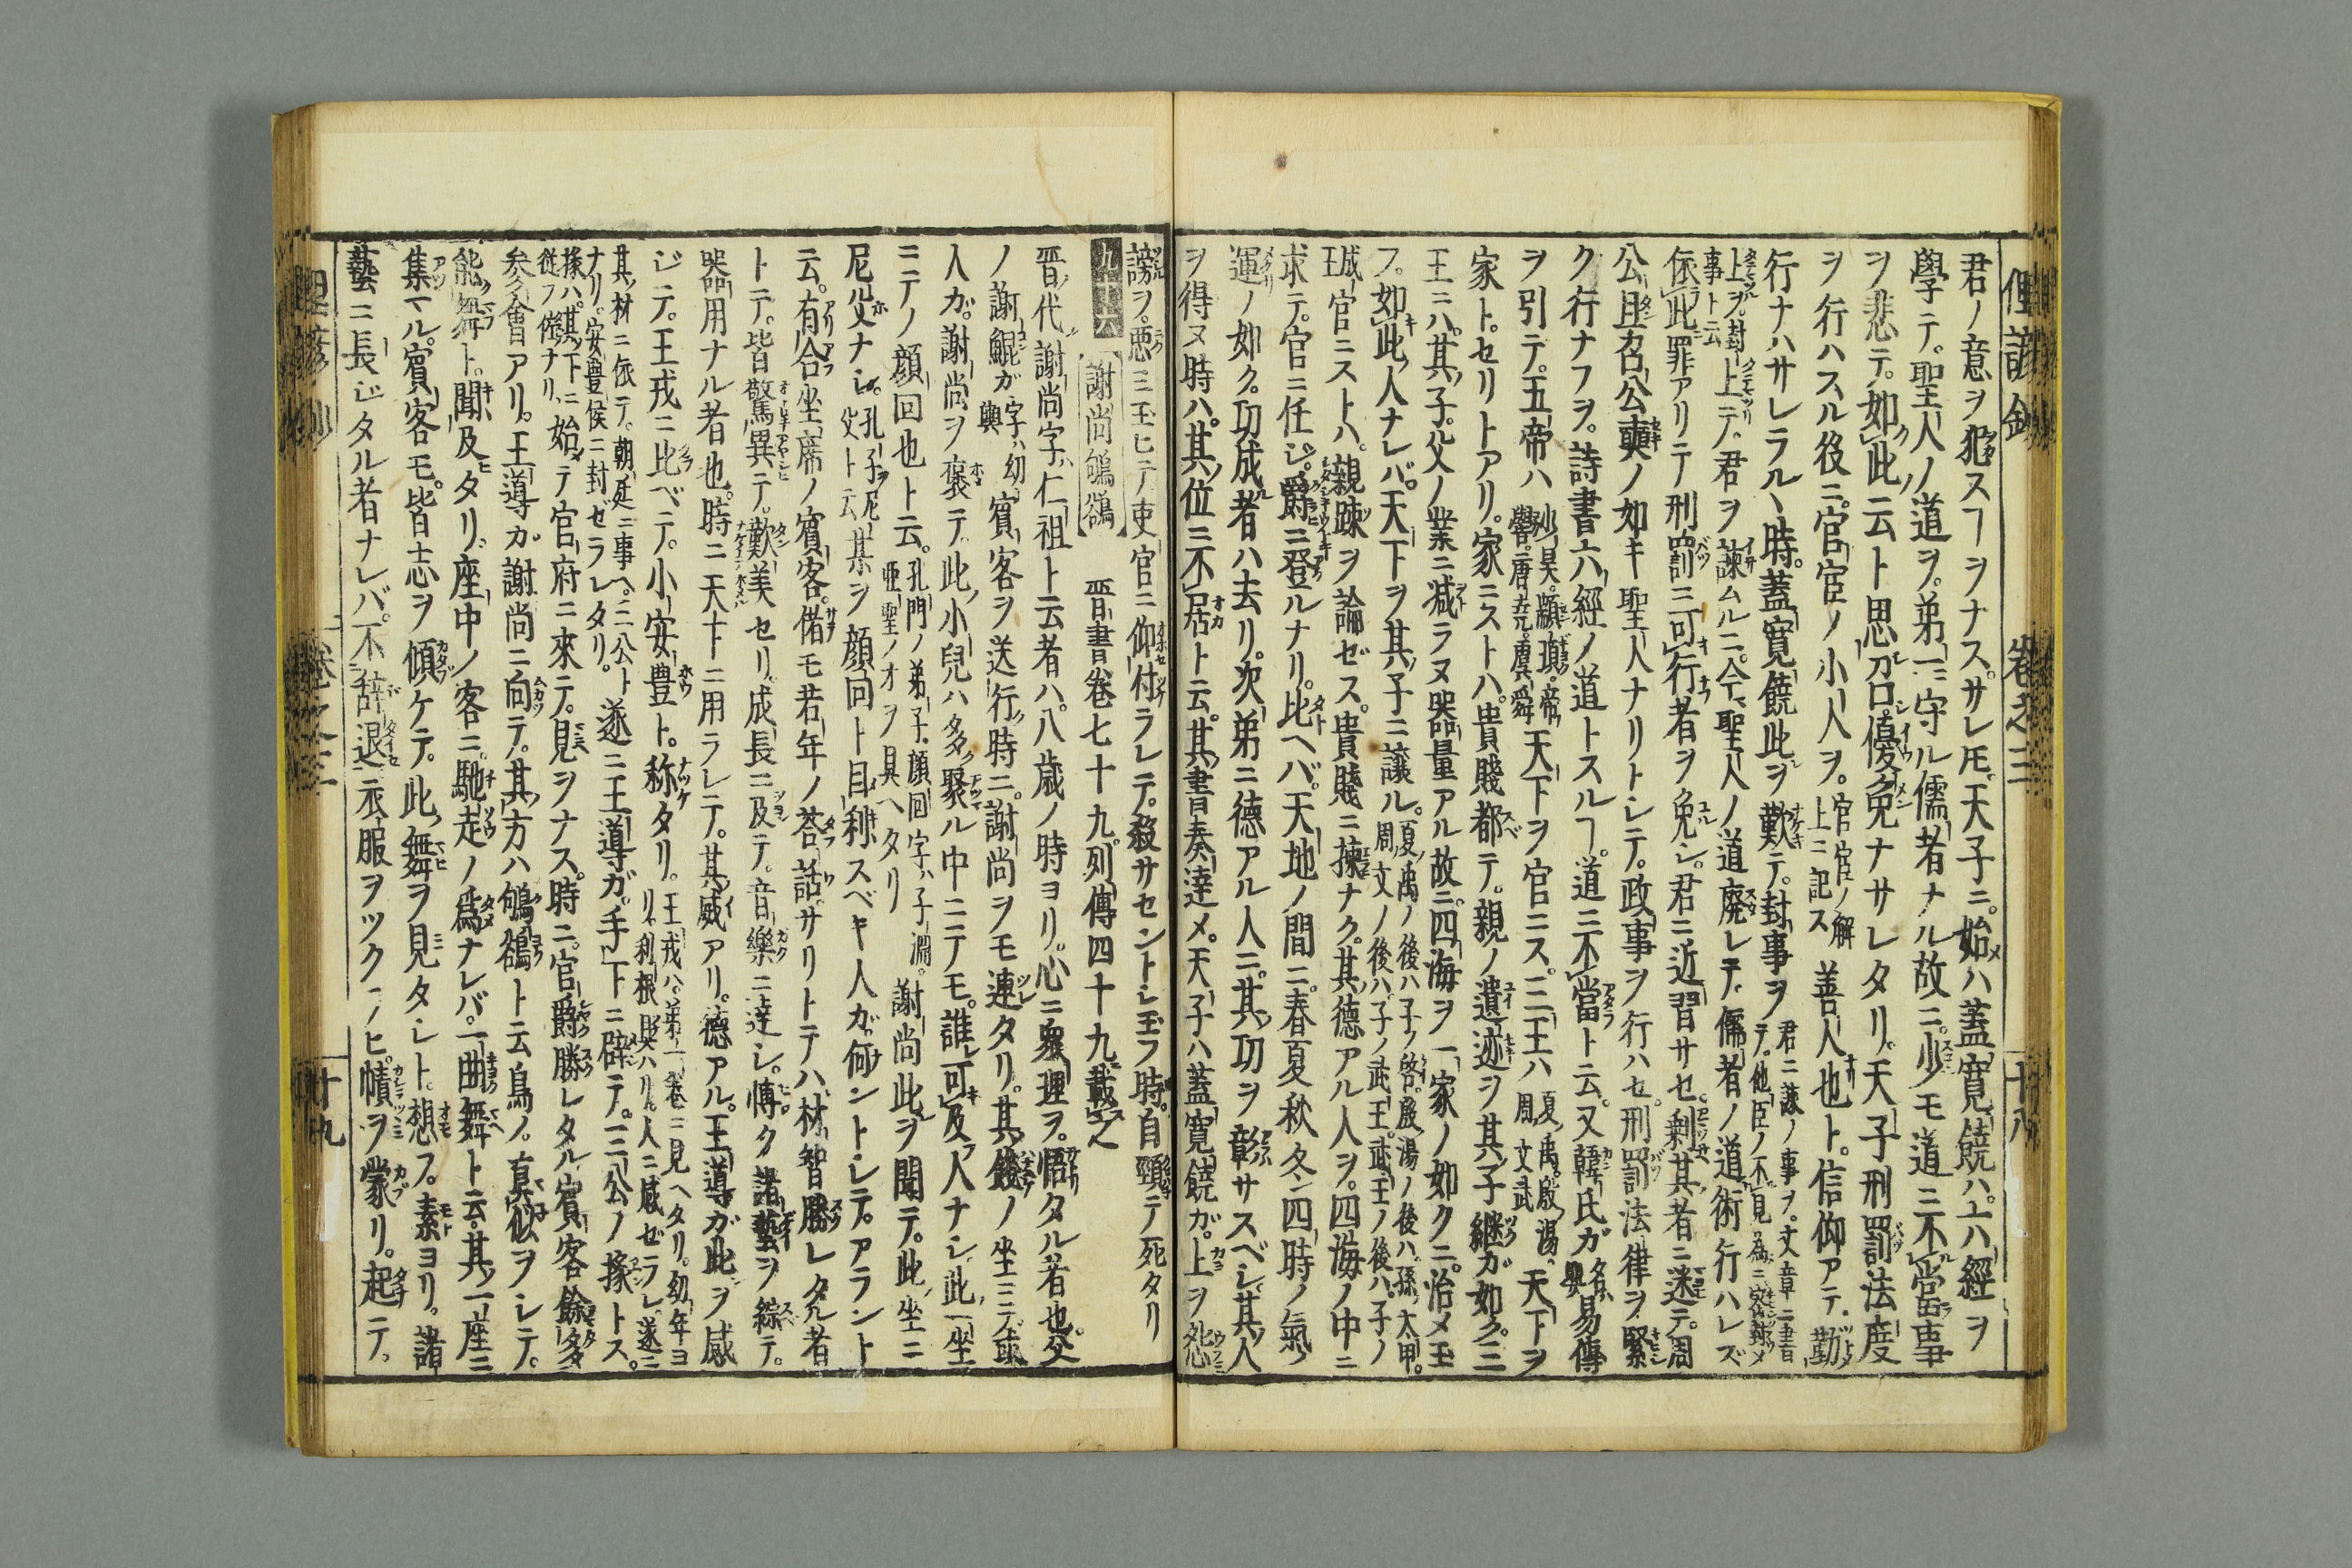 俚諺鈔 卷之三 十八
君ノ意ヲ犯スヿヲナス。サレ𪜈天子ニ。始ハ蓋寬饒ハ。上ハ經ヲ
學テ。聖人ノ道ヲ。第一ニ守ル儒者ナル故ニ。少モ道ニ不當事
ヲ悲テ。如此云ト思召。優免ナサレタリ。天子刑罰法度
ヲ行ハスル役ニ。官宦ノ小人ヲ。官宦ノ解上ニ記ス善人也ト。信仰アテ。勤
行ナハサレラルヽ時。蓋寬饒此ヲ歎テ。封事ヲ君ニ諫ノ事ヲ。文章ニ書テ。他臣ノ不見為ニ密封メ
上ヲ。封事ト云上テ。君ヲ諫ムルニ。今聖人ノ道廢レテ。儒者ノ道術行ハレズ
依此罪アリテ刑罰ニ可行者ヲ免シ。君ニ近習サセ。剩其者ニ迷テ。周
公旦召公奭ノ如キ聖人ナリトシテ。政事ヲ行ハセ。刑罰法律ヲ緊
ク行ナフヲ。詩書六經ノ道トスルヿ。道ニ不當ト云。又韓氏ガ名ハ嬰易傳
ヲ引テ。五帝ハ少昊。顓頊。帝嚳。唐堯。虞舜天下ヲ官ニス。三王ハ夏禹。殷湯。周文武天下ヲ
家ト。セリトアリ。家ニストハ。貴賤都テ。親ノ遺迹ヲ其子継ガ如ク。三
王ニハ。其子。父ノ業ニ減ラヌ器量アル故ニ。四海ヲ一家ノ如クニ。治メ玉
フ。如此人ナレバ。天下ヲ其子ニ讓ル。夏禹ノ後ハ子ノ啓。殷湯ノ後ハ孫太甲。周文ノ後ハ子ノ武王。武王ノ後ハ。子ノ成王
官ニストハ。親踈ヲ論ゼス。貴賤ニ揀ナク。其德アル人ヲ。四海ノ中ニ
求テ。官ニ任ジ。爵ニ登ルナリ。比ヘバ。天地ノ間ニ。春夏秋冬四時ノ氣ノ
運ノ如ク。功成者ハ去リ。次第ニ德アル人ニ。其功ヲ彰サスベシ。其人
ヲ得ヌ時ハ。其位ニ不居ト云。其書奏達メ。天子ハ蓋寬饒ガ。上ヲ怨
謗ヲ。惡ミ玉ヒテ吏官ニ仰付ラレテ。殺サセントシ玉フ時。自頸テ死タリ
九十六 謝尚鴝鵒 晋書卷七十九。列傳四十九。載之
晋代謝尚字ハ仁祖ト云者ハ。八歳ノ時ヨリ。心ニ衆理ヲ。悟タル者也。父
ノ謝鯤ガ字ハ幼輿賓客ヲ送行時ニ。謝尚ヲモ連タリ。其餞ノ坐ニテ。或
人ガ。謝尚ヲ褒テ。此小兒ハ多聚ル中ニテモ。誰可及人ナシ。此一坐
ニテノ顔回也ト云。孔門ノ弟子顔回字ハ子淵。亜聖ノオヲ具ヘタリ謝尚此ヲ聞テ。此坐ニ
尼父ナシ。孔子ヲ尼父ト云某ヲ顔回ト目利スベキ人ガ。何ントシテ。アラント
云。有合坐席ノ賓客。偖モ若年ノ荅話。サリトテハ。材智勝レタル者
トテ。皆驚異テ。歎美セリ。成長ニ及テ。音樂ニ達シ。博ク諸藝ヲ綜テ。
器用ナル者也。時ニ天下ニ用ラレテ。其威アリ。德アル。王導ガ此ヲ感
ジテ。王戎ニ比ベテ。小安豊ト。称タリ。王戎ハ。第一卷ニ見ヘタリ。幼年ヨリ。利根聡ハリ。人ニ感ゼラレ。遂ニ
其材ニ依テ。朝廷ニ事ヘ。三公トナリ。安豊侯ニ封ゼラレタリ。遂ニ王導ガ。手下ニ辟テ。三公ノ掾トス。
掾ハ。其下ニ從フ僚ナリ。始テ官府ニ來テ。見ヲナス。時ニ。官爵勝レタル賓客餘多
参會アリ。王導ガ謝尚ニ向テ。其方ハ鴝鵒ト云鳥ノ。真似ヲシテ。
能舞ト。聞及タリ。座中ノ客ニ。馳走ノ為ナレバ。一曲舞ト云。其一座ニ
集マル。賓客モ。皆志ヲ傾ケテ。此舞ヲ見タシト。想ス。素ヨリ。諸
藝ニ長ジタル者ナレバ。不辞退衣服ヲツクノヒ。幘ヲ蒙リ。起テ。
卷之三 十九